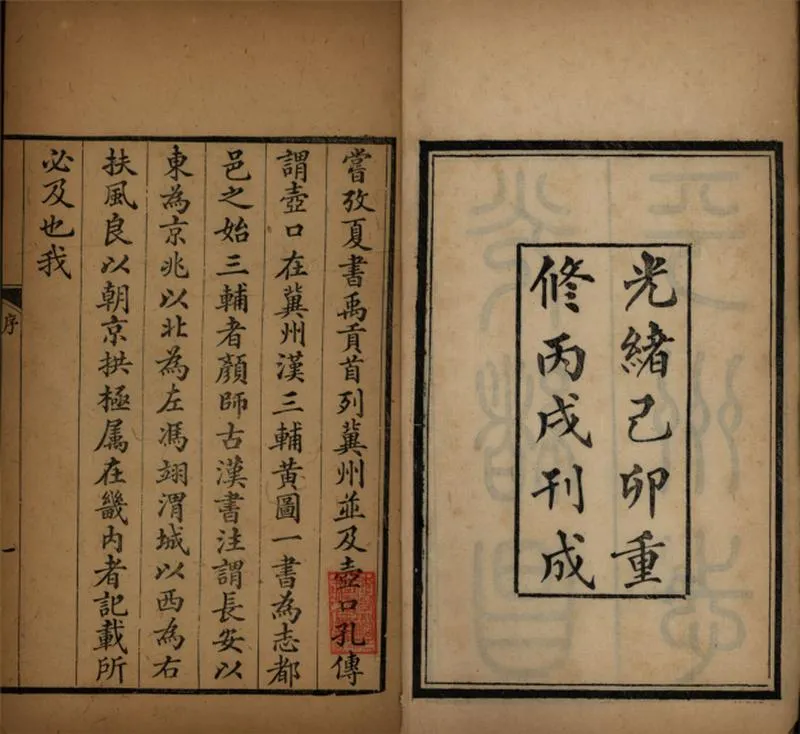 光緒己卯重
修丙戌刊成
嘗攷夏書禹貢首列冀州並及壺口孔傳
謂壺口在冀州漢三輔黃圖一書為志都
邑之始三輔者顏師古漢書注謂長安以
東為京兆以北為左馮翊渭城以西為右
扶風良以朝京拱極属在畿內者記載所
必及也我
序
一